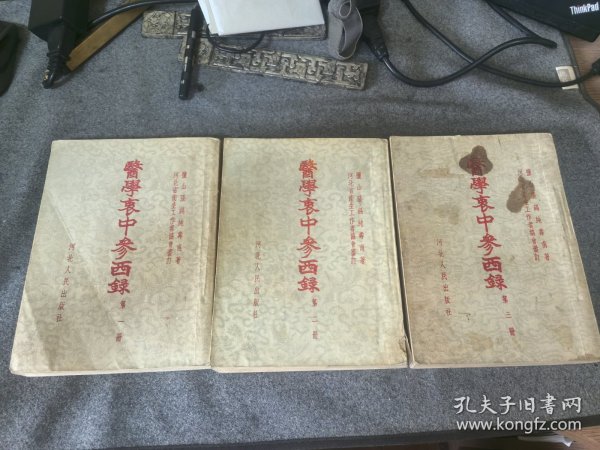 ThinkPad
鹽山張錫純壽甫著
河北省衛生工作者協會審訂
醫學衷中參西錄
第一冊
河北人民出版社
鹽山張錫純壽甫著
河北省衛生工作者協會審訂
醫學衷中參西錄
第二冊
河北人民出版社
鹽山張錫純壽甫著
衛生工作者協會審訂
醫學衷中參西錄
第三冊
河北人民出版社
孔夫子旧书网
www.kongfz.com